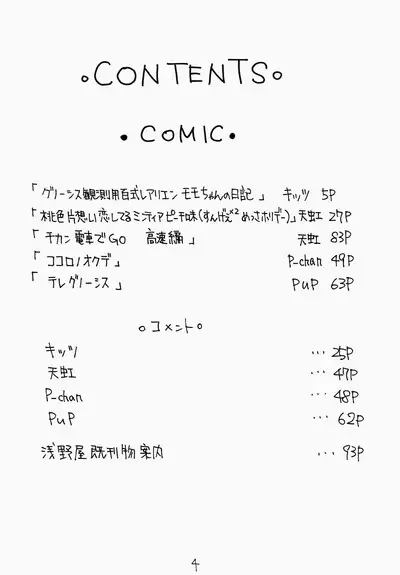 CONTENTS
COMIC
「グリーシス観測用百式レアリエン モモちゃんの日記」 キッツ 5P
「桃色片想い恋してるミンティアピーチ味(すんげぇ×2めっさホリデー)」天虹 27P
「チカン電車でGO 高速編」 天虹 83P
「ココロノオクデ」 P-chan 49P
「テレグリーシス」 PuP 63P
○コメント○
キッツ ・・・25P
天虹 ・・・47P
P-chan ・・・48P
PuP ・・・62P
浅野屋既刊物案内 ・・・93P
4